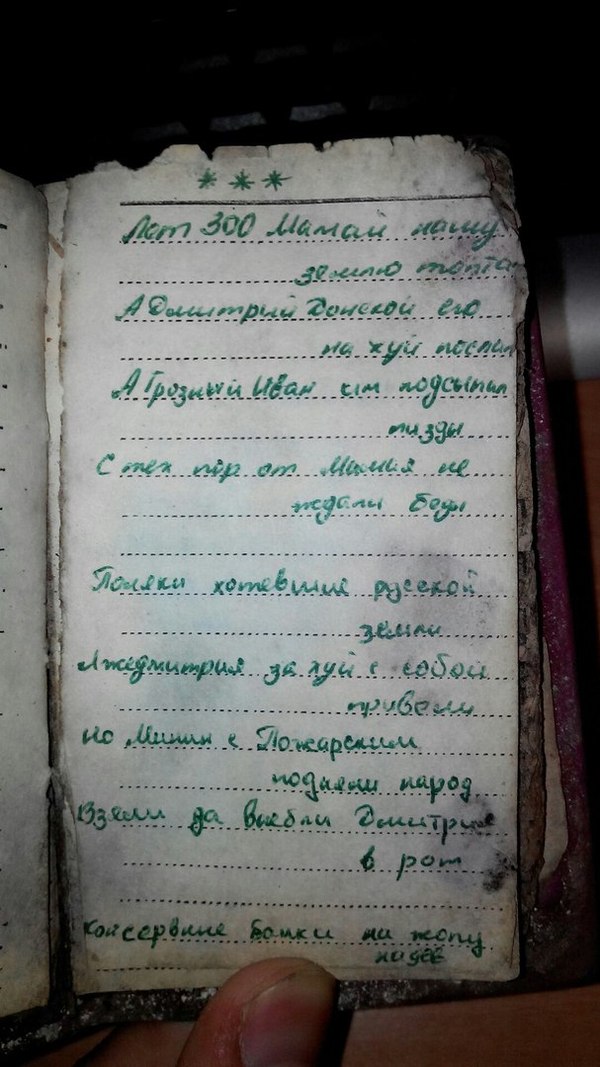 ***
Лет 300 Мамай нашу
землю топтал
А Дмитрий Донской его
на хуй послал
А Грозный Иван им подсыпал
пизды
С тех пор от Мамая не
ждали беды
Поляки хотевшие русской
земли
Лжедмитрия за хуй с собой
привели
но Минин с Пожарским
подняли народ
Взяли да выебли Дмитрия
в рот
консервние банки на жопу
надев